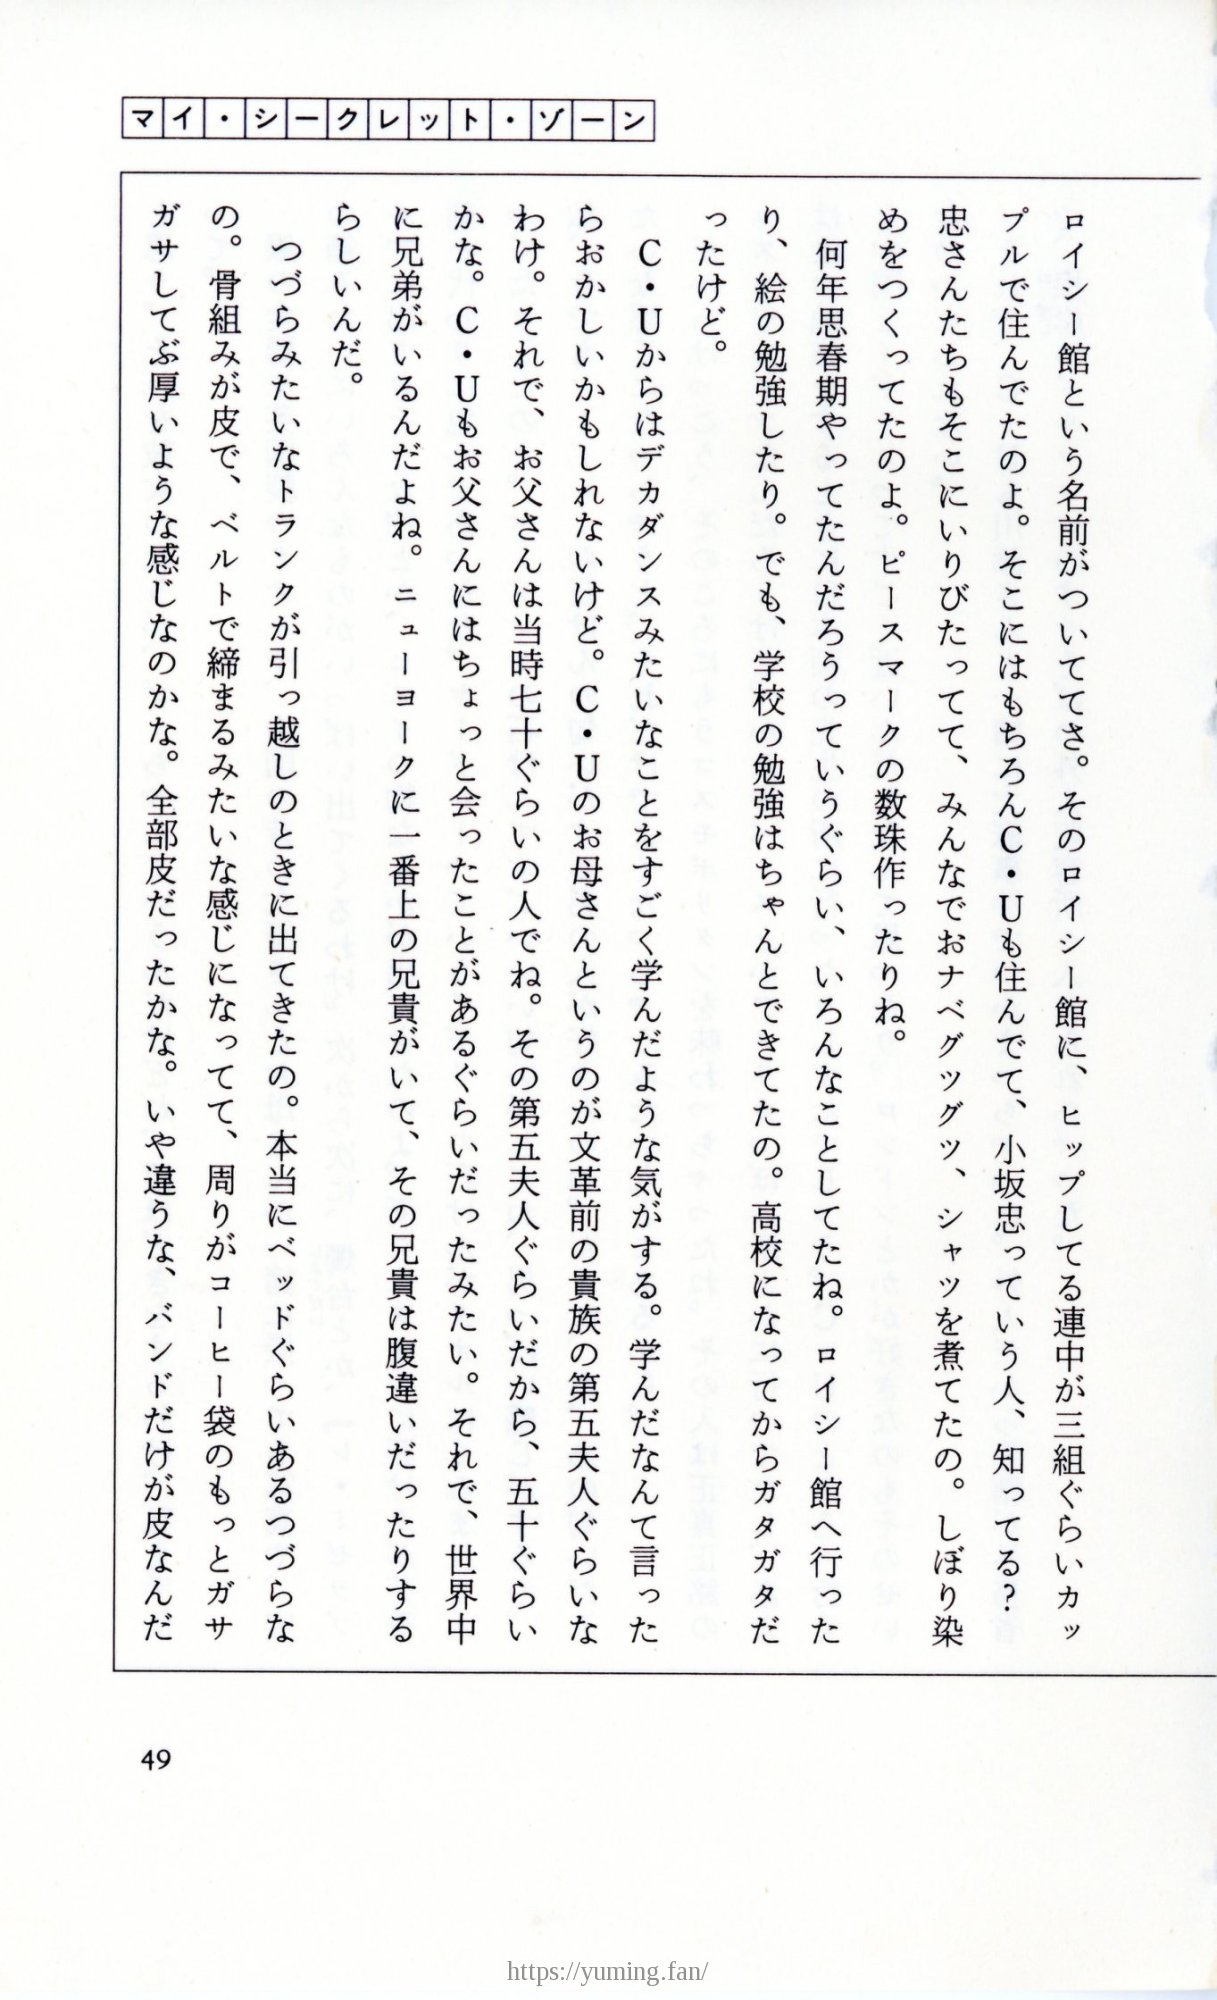 マイ・シークレット・ゾーン
ロイシー館という名前がついててさ。そのロイシー館に、ヒップしてる連中が三組ぐらいカッ
プルで住んでたのよ。そこにはもちろんC・Uも住んでて、小坂忠っていう人、知ってる?
忠さんたちもそこにいりびたってて、みんなでおナベグツグツ、シャツを煮てたの。しぼり染
めをつくってたのよ。ピースマークの数珠作ったりね。
何年思春期やってたんだろうっていうぐらい、いろんなことしてたね。ロイシー館へ行った
り、絵の勉強したり。でも、学校の勉強はちゃんとできてたの。高校になってからガタガタだ
ったけど。
C・Uからはデカダンスみたいなことをすごく学んだような気がする。学んだなんて言った
らおかしいかもしれないけど。C・Uのお母さんというのが文革前の貴族の第五夫人ぐらいな
わけ。それで、お父さんは当時七十ぐらいの人でね。その第五夫人ぐらいだから、五十ぐらい
かな。C・Uもお父さんにはちょっと会ったことがあるぐらいだったみたい。それで、世界中
に兄弟がいるんだよね。ニューヨークに一番上の兄貴がいて、その兄貴は腹違いだったりする
らしいんだ。
つづらみたいなトランクが引っ越しのときに出てきたの。本当にベッドぐらいあるつづらな
の。骨組みが皮で、ベルトで締まるみたいな感じになってて、周りがコーヒー袋のもっとガサ
ガサしてぶ厚いような感じなのかな。全部皮だったかな。いや違うな、バンドだけが皮なんだ
49
https://yuming.fan/